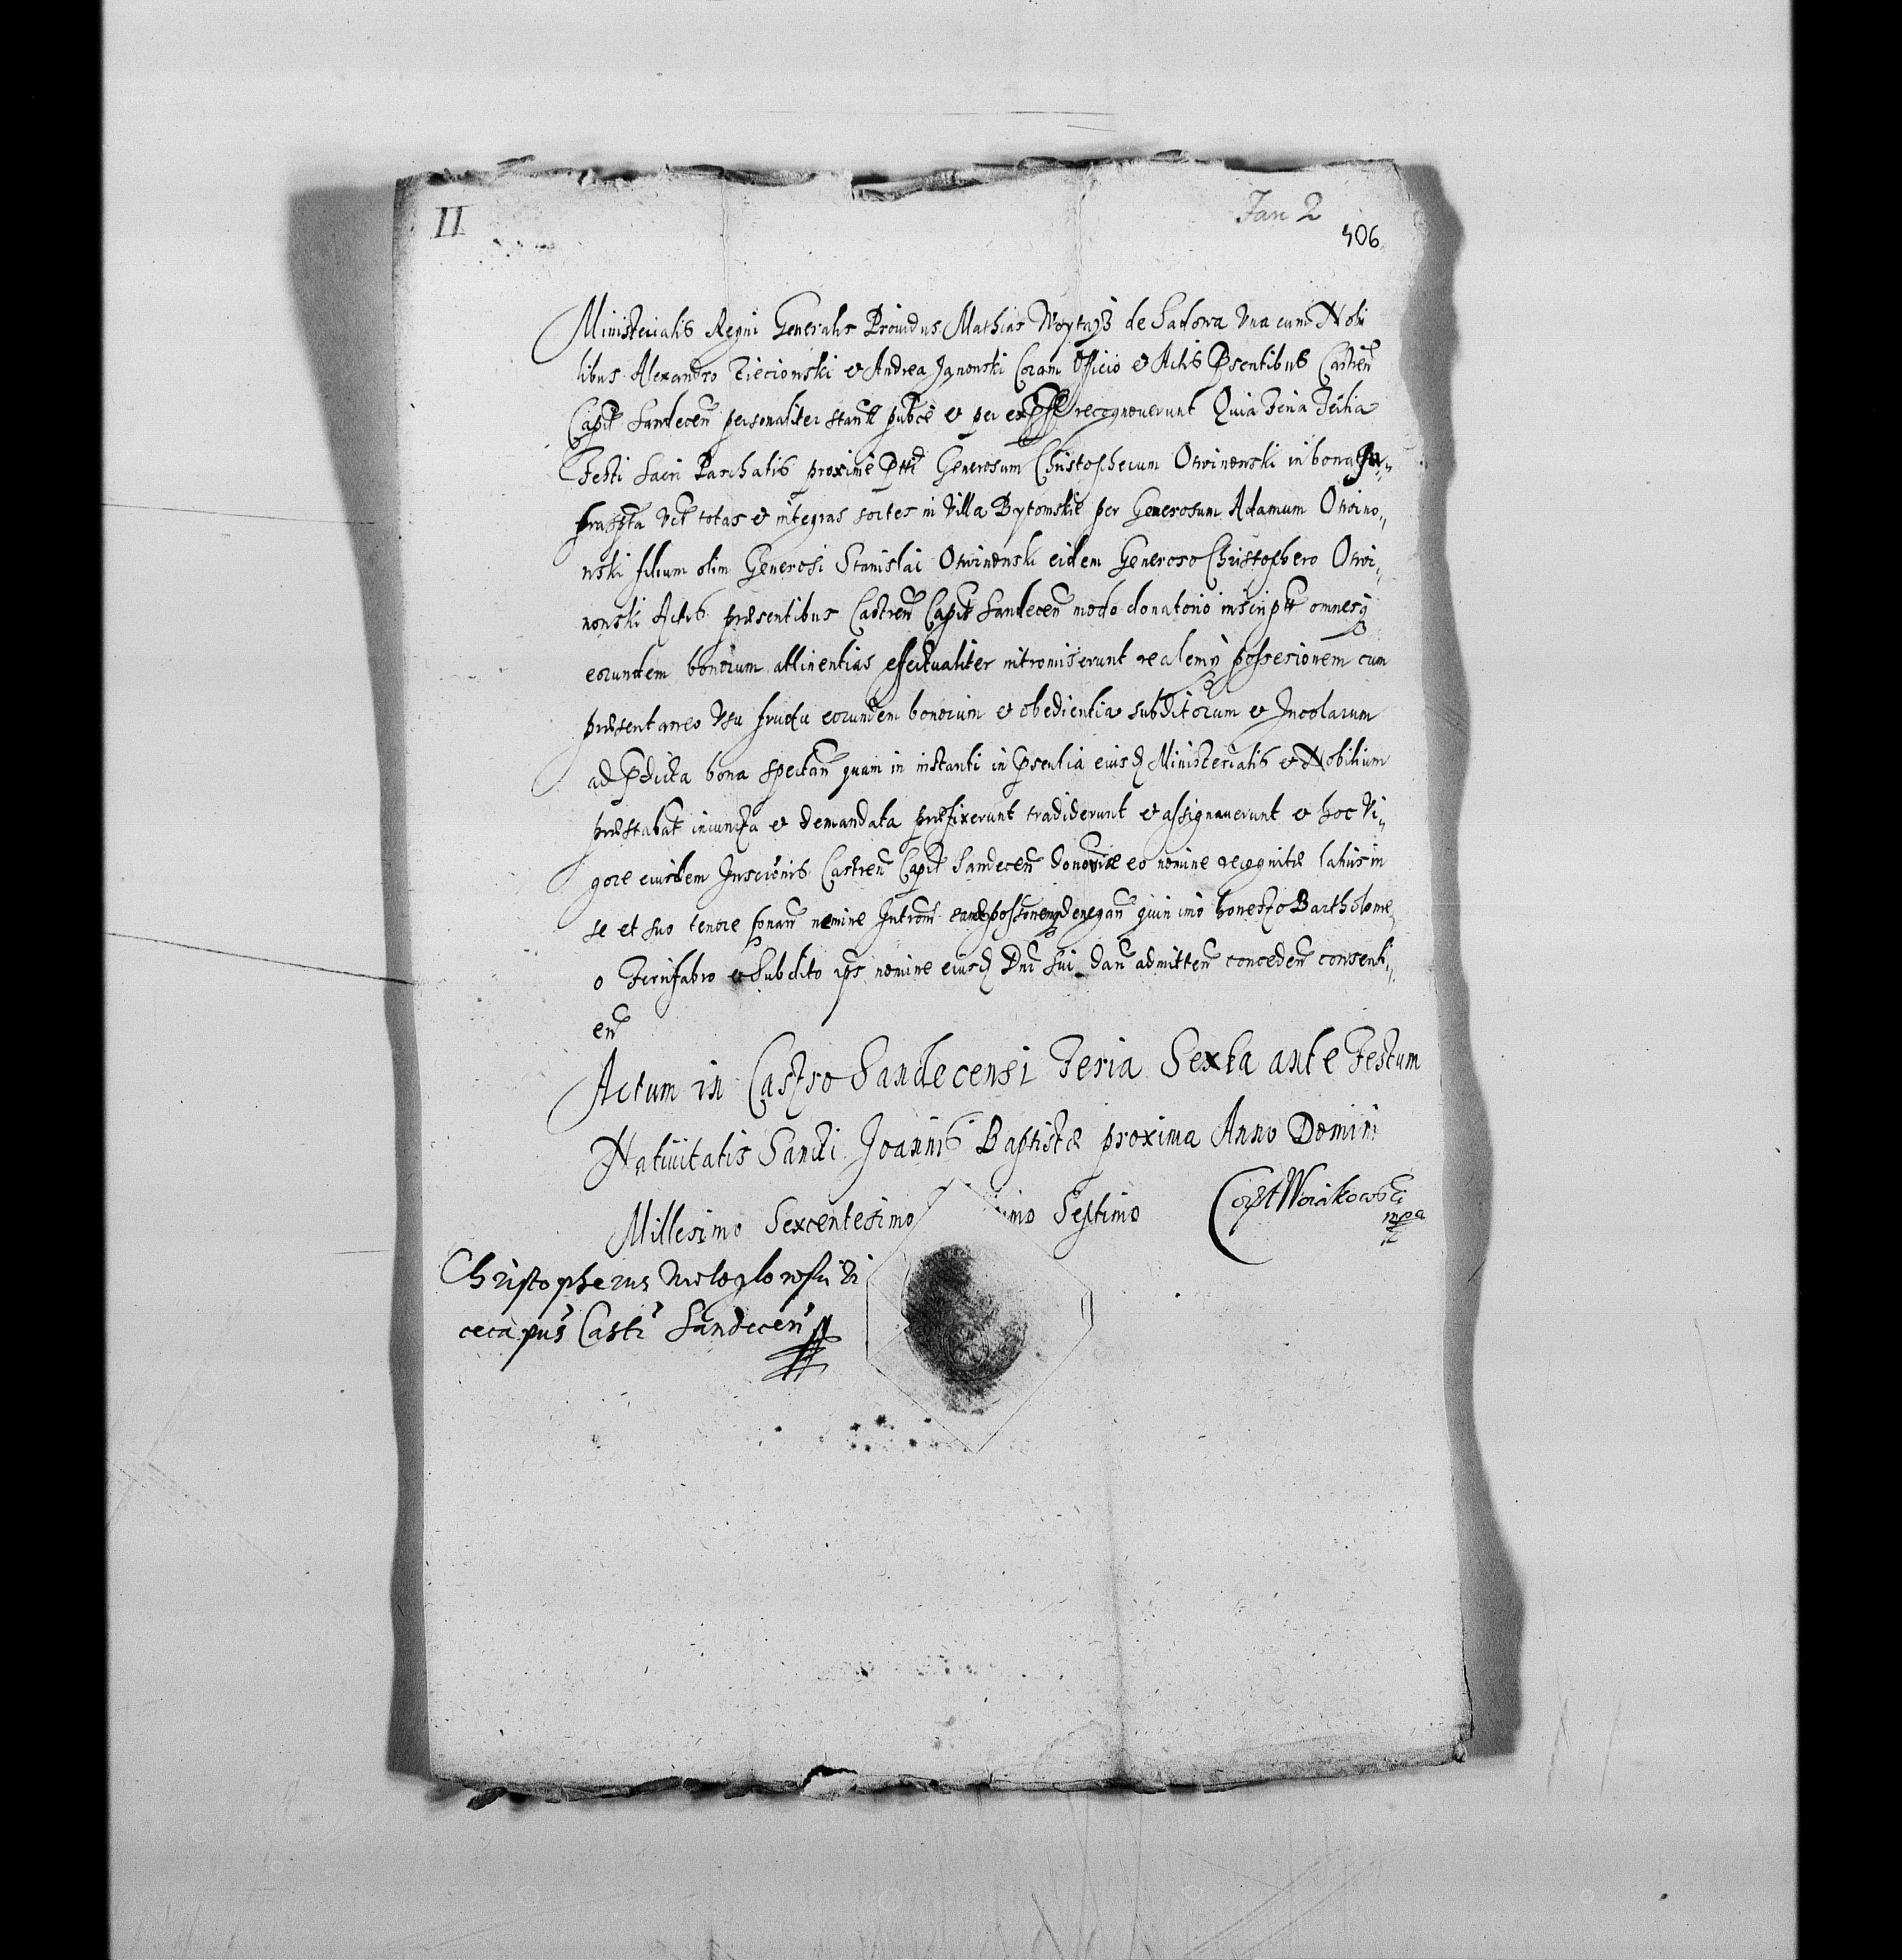 II
Jan 2
406
Ministerialis Regni Generalis Providus Mathias Woytasz de Sadowa Una cum Nobi
libus Alexandro et Andrea Janowski Coram Officio et Actis Psentibus Castren
Capit Sandecen personaliter stant pubce et per recognoverunt Quia Feria Tertia
Festi Sacri Paschatis proxime Ptti Generosum Christopherum Otwinowski in bona In„
frascpta Vct totas et integras sortes in Villa Bytomskie per Generosum Adamum Otwino„
wski filium olim Generosi Stanislai Otwinowski eidem Generoso Christophero Otwi„
nowski Actis præsentibus Castren Capit Sandecen modo donatorio inscript omnesq
eorundem bonorum attinentias effectualiter intromiserunt realemq possesionem cum
præsentaneo Usu fructu eorundem bonorum et obedientia subditorum et Incolarum
ad Pdicta bona spectan quam in instanti in Psentia eiusd Ministerialis et Nobilium
præstabat iniuncta et demandata præfixerunt tradiderunt et assignaverunt et hoc Vi„
gore eiusdem Inscrionis Castren Capit Sandecen eo nomine recognitæ latius in
se et suo tenore sonan nemine Introm denegan quin imo honesto Bartholome„
o Ferrifabro et Subdito ips nomine eiusd Dni sui dan admitten conceden consenti„
en
Actum in Castro Sandecensi Feria Sexta ante Festum
Nativitatis Sancti Joannis Baptistæ proxima Anno Domini
Millesimo Sexcentesimo imo Septimo
Christopherus Vi
cecapus Castr Sandecen